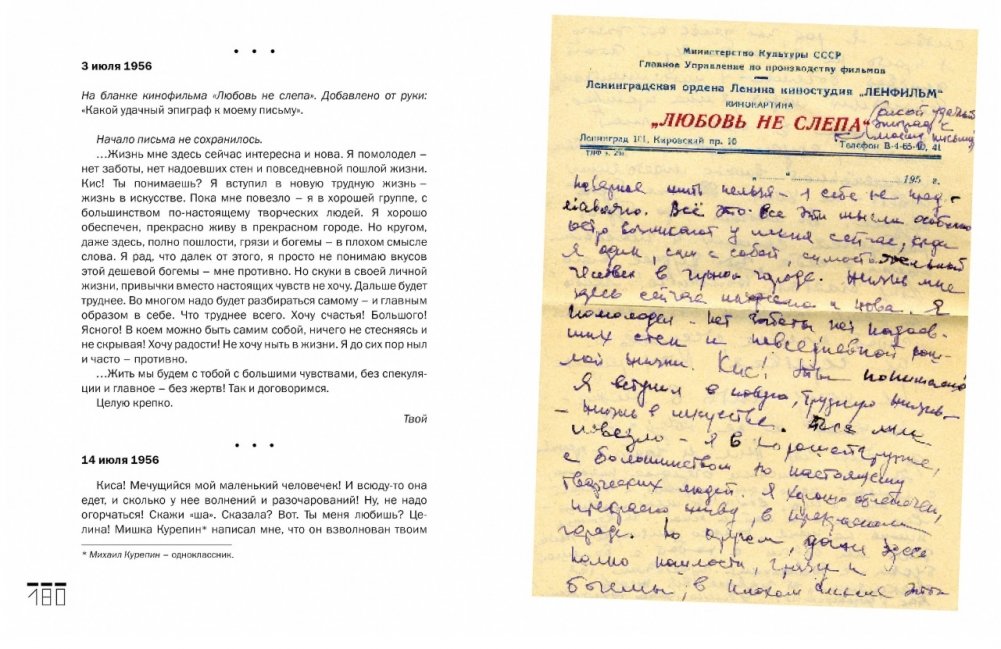 • • •
3 июля 1956
На бланке кинофильма «Любовь не слепа». Добавлено от руки:
«Какой удачный эпиграф к моему письму».
Начало письма не сохранилось.
...Жизнь мне здесь сейчас интересна и нова. Я помолодел –
нет заботы, нет надоевших стен и повседневной пошлой жизни.
Кис! Ты понимаешь? Я вступил в новую трудную жизнь –
жизнь в искусстве. Пока мне повезло – я в хорошей группе, с
большинством по-настоящему творческих людей. Я хорошо
обеспечен, прекрасно живу в прекрасном городе. Но кругом,
даже здесь, полно пошлости, грязи и богемы – в плохом смысле
слова. Я рад, что далек от этого, я просто не понимаю вкусов
этой дешевой богемы – мне противно. Но скуки в своей личной
жизни, привычки вместо настоящих чувств не хочу. Дальше будет
труднее. Во многом надо будет разбираться самому – и главным
образом в себе. Что труднее всего. Хочу счастья! Большого!
Ясного! В коем можно быть самим собой, ничего не стесняясь и
не скрывая! Хочу радости! Не хочу ныть в жизни. Я до сих пор ныл
и часто – противно.
...Жить мы будем с тобой с большими чувствами, без спекуля-
ции и главное – без жертв! Так и договоримся.
Целую крепко.
Твой
• • •
14 июля 1956
Киса! Мечущийся мой маленький человечек! И всюду-то она
едет, и сколько у нее волнений и разочарований! Ну, не надо
огорчаться! Скажи «ша». Сказала? Вот. Ты меня любишь? Це-
лина! Мишка Курепин* написал мне, что он взволнован твоим
* Михаил Курепин – одноклассник.
180
Министерство Культуры СССР
Главное Управление по производству фильмов
Ленинградская ордена Ленина киностудия „ЛЕНФИЛЬМ“
КИНОКАРТИНА
„ЛЮБОВЬ НЕ СЛЕПА“
Какой удачный
эпиграф к
моему письму
Ленинград 101, Кировский пр. 10
Телефон В-4-65-10, 41
„ “ 195 г.
жить нельзя – я себе не пред-
ставляю. Всё это все эти мысли особенно
остро возникают у меня сейчас, когда
я один, сам с собой, самостоятельный
человек в чужом городе. Жизнь мне
здесь сейчас интересна и нова. Я
помолодел – нет заботы нет надоев-
ших стен и повседневной пош-
лой жизни. Кис! Ты понимаешь
Я вступил в новую, трудную жизнь–
– жизнь в искусстве. Пока мне
повезло – я в хорошей группе,
с большинством по настоящему
творческих людей. Я хорошо обеспечен,
прекрасно живу, в прекрасном
городе. Но кругом, даже здесь
полно пошлости, грязи и
богемы, в плохом смысле этого